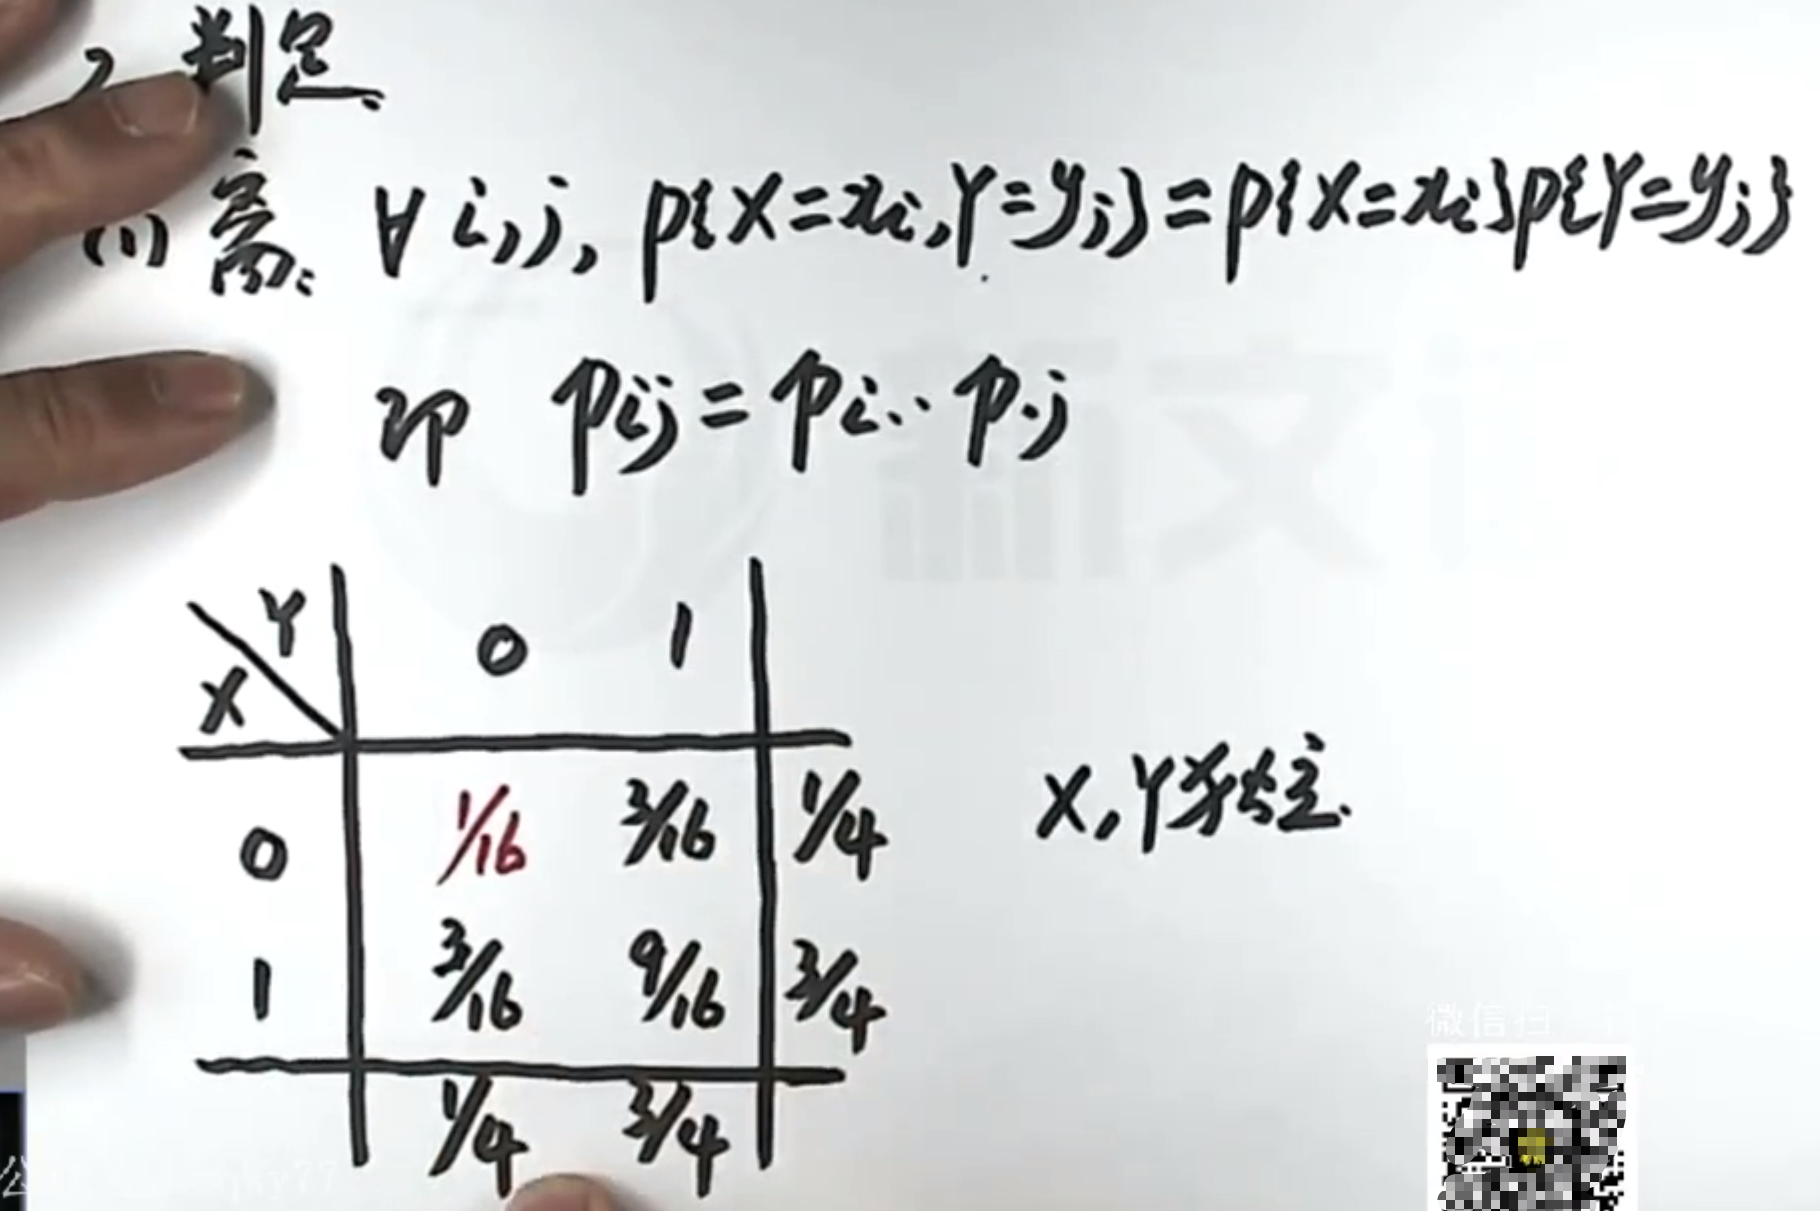 2. 判定.
(1) 离: ∀ i,j, P{X=xi,Y=yj}=P{X=xi}P{Y=yj}
即 Pij=Pi.·P.j
Y
X
0 1
0 1/16 3/16 1/4
X,Y独立.
1 3/16 9/16 3/4
1/4 3/4
微信扫